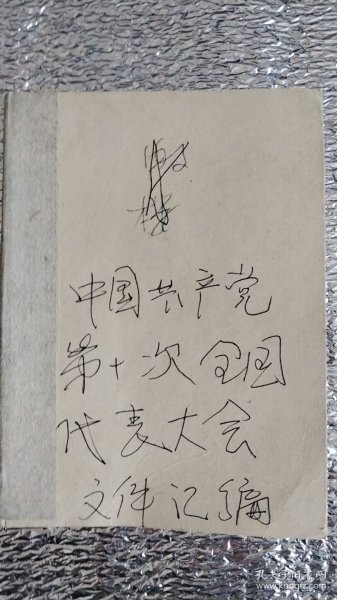 中国共产党
第十次全国
代表大会
文件汇编
孔夫子旧书网